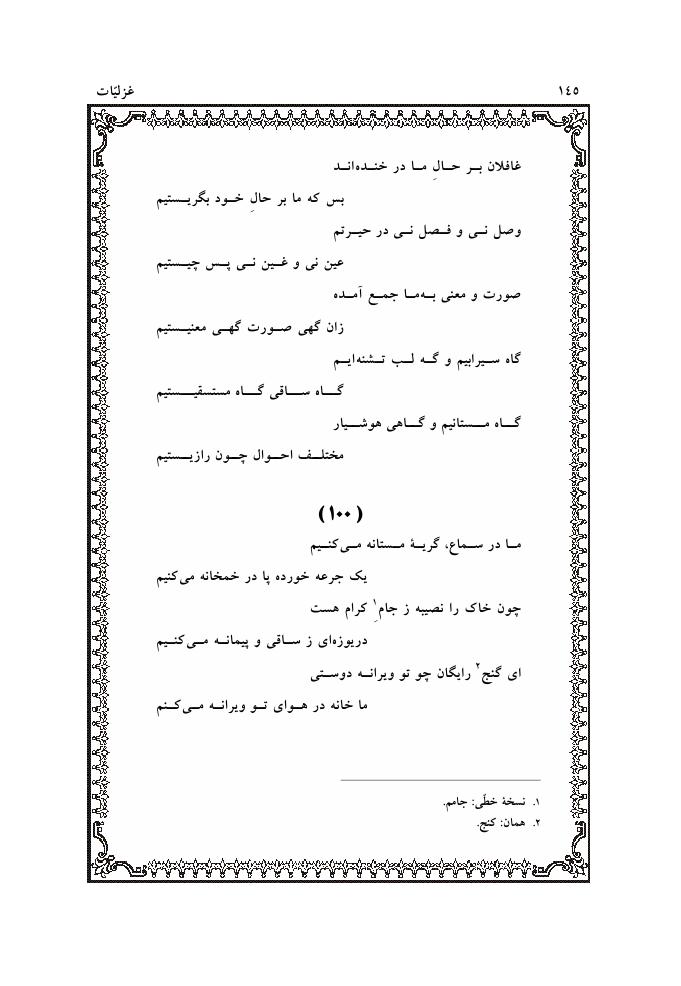 ١٤٥ غزلیّات
غافلان بر حالِ ما در خنده‌اند
بس که ما بر حالِ خود بگریستیم
وصل نی و فصل نی در حیرتم
عین نی و غین نی پس چیستیم
صورت و معنی به‌ما جمع آمده
زان گهی صورت گهی معنیستیم
گاه سیرابیم و گه لب تشنه‌ایم
گاه ساقی گاه مستسقیستیم
گاه مستانیم و گاهی هوشیار
مختلف احوال چون رازیستیم
(۱۰۰)
ما در سماع، گریۀ مستانه می‌کنیم
یک جرعه خورده پا در خمخانه می‌کنیم
چون خاک را نصیبه ز جامِ۱ کرام هست
دریوزه‌ای ز ساقی و پیمانه می‌کنیم
ای گنج۲ رایگان چو تو ویرانه دوستی
ما خانه در هوای تو ویرانه می‌کنم
۱. نسخۀ خطّی: جامم.
۲. همان: کنج.